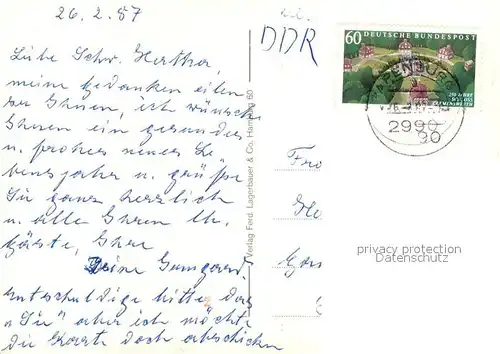 26.2.87
Liebe Schw. Hertha,
meine Gedanken eilen
zu Ihnen, ich wünsche
Ihnen ein gesundes
u. frohes neues Le-
bensjahr u. grüße
Sie ganz herzlich
u. alle Ihren lb.
Gäste, Ihre
entschuldige bitte das
"Sie" aber ich möchte
die Karte doch abschicken
DDR
60 DEUTSCHE BUNDESPOST
2990
90
Verlag Ferd. Lagerbauer & Co. Hamburg 50
privacy protection
Datenschutz